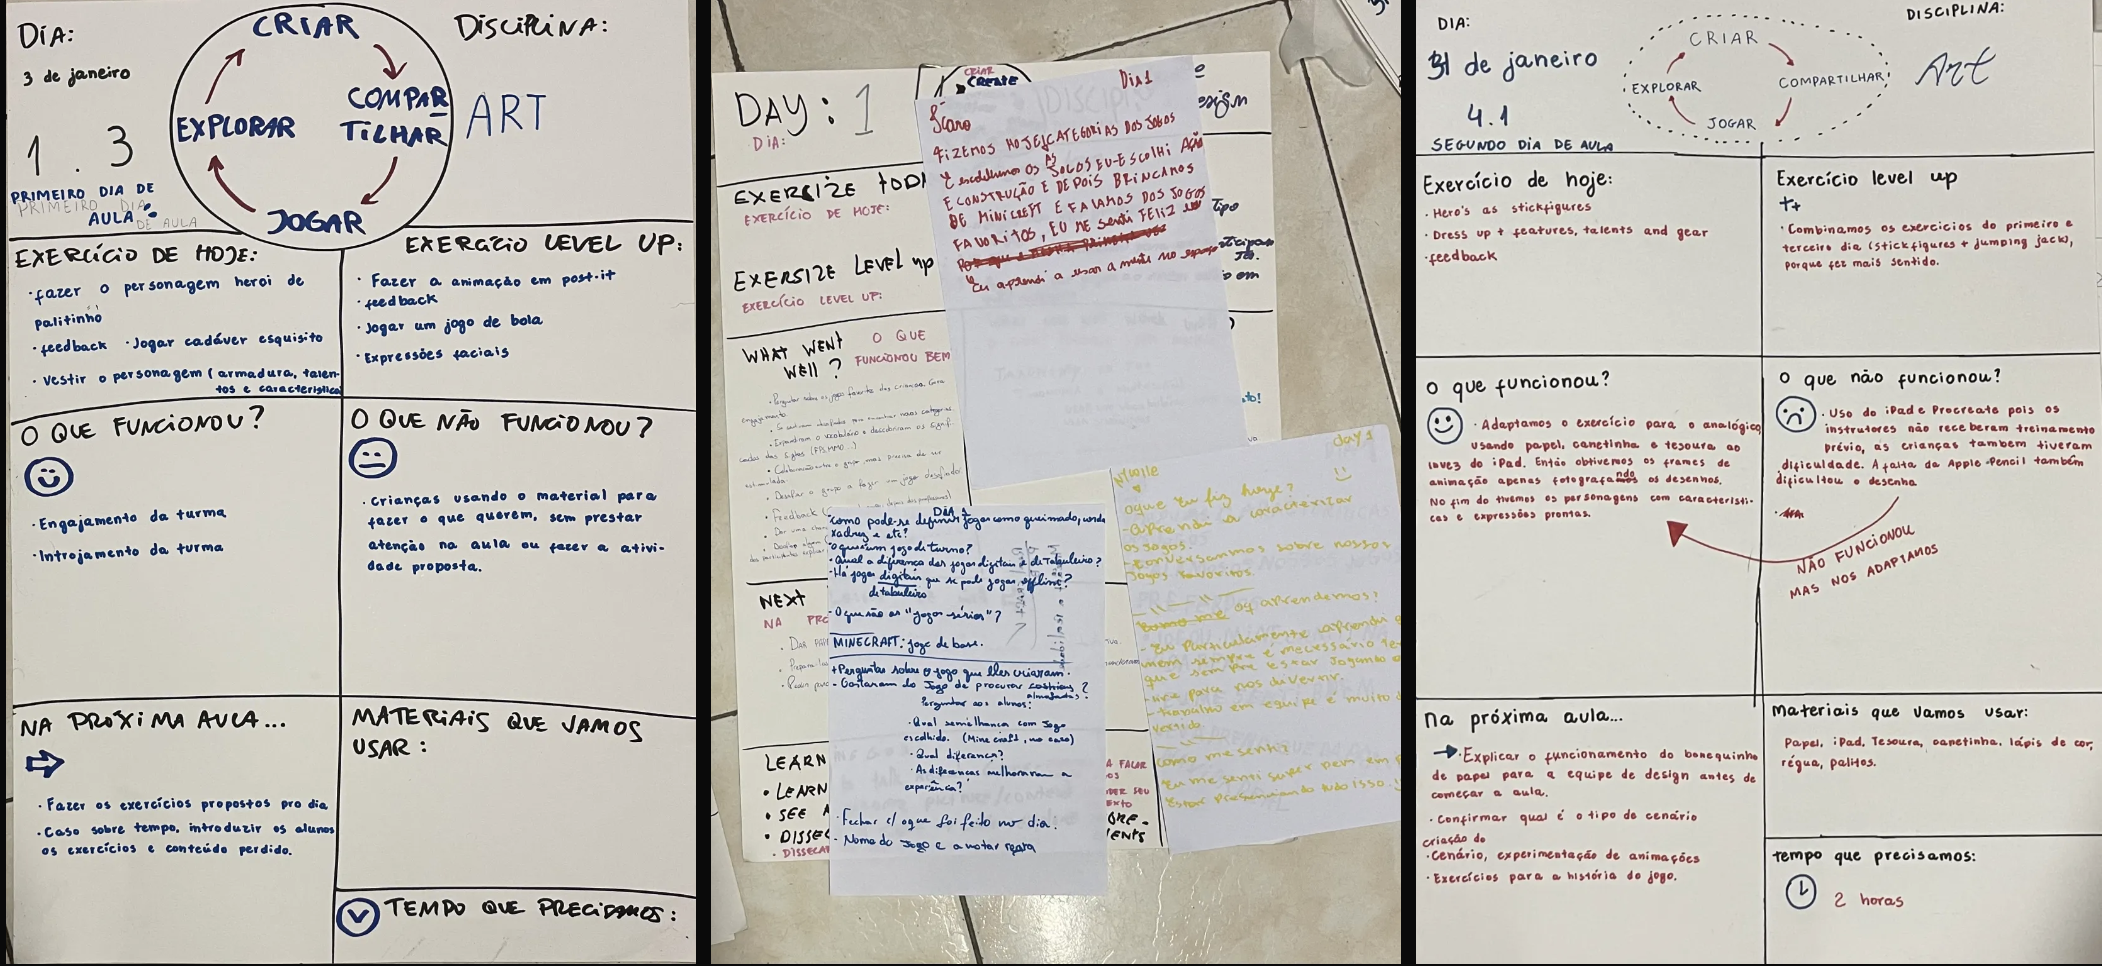 DIA:
3 de janeiro
1.3
PRIMEIRO DIA DE
PRIMEIRO DIA
AULA
DE AULA
CRIAR
COMPAR
TILHAR
JOGAR
EXPLORAR
DISCIPLINA:
ART
EXERCÍCIO DE HOJE:
·fazer o personagem heroi de
palitinho
·feedback ·Jogar cadáver esquisito
·Vestir o personagem (armadura, talen-
tos e caracteristica
EXERCÍCIO LEVEL UP:
·Fazer a animação em post-it
·feedback
·Jogar um jogo de bola
·Expressões faciais
O QUE FUNCIONOU?
·Engajamento da turma
·Introjamento da turma
O QUE NÃO FUNCIONOU?
·Crianças usando o material para
fazer o que querem, sem prestar
atenção na aula ou fazer a ativi-
dade proposta.
NA PRÓXIMA AULA...
·Fazer os exercícios propostos pro dia
·Caso sobre tempo, introduzir os alunos
os exercícios e conteúdo perdido.
MATERIAIS QUE VAMOS
USAR:
TEMPO QUE PRECISAMOS:
DAY: 1
DIA:
CRIAR
CREATE
EXERCIZE TODA
EXERCÍCIO DE HOJE:
EXERSIZE LEVEL UP
EXERCÍCIO LEVEL UP:
WHAT WENT
WELL?
O QUE
FUNCIONOU BEM
NEXT
NA PRÓ
LEARN
• LEARN
• SEE A
• DISSEC
• DISSECA
Dia 1
Ícaro
FIZEMOS HOJE CATEGORIAS DOS JOGOS
E escolhemos OS AS JOGOS EU ESCOLHI AÇÃO
E CONSTRUÇÃO E DEPOIS BRINCAMOS
DE MINICRAFT E FALAMOS DOS JOGOS
FAVORITOS, EU ME senti FELIZ
Eu aprendi a usar a mente no
DIA 1
Como pode-se definir jogos como queimado, corda
xadrez e etc?
·O que é um jogo de turno?
·Qual a diferença dos jogos digitais e de tabuleiro?
·Há jogos digitais que se pode jogar offline?
de tabuleiro
·O que são os "jogos sérios"?
MINECRAFT: jogo de base.
+Perguntas sobre o jogo que eles criaram.
-Gostaram do Jogo de procurar almofadas?
Perguntar aos alunos:
·Qual semelhança com jogo
escolhido. (Minecraft, no caso)
·Qual diferença?
·As diferenças melhoraram a
experiência?
·Fechar c/ o que foi feito no dia.
·Nome do Jogo e anotar
day 1
Nicolle
oque eu fiz hoje?
-aprendi a caracterizar
os jogos.
-conversamos sobre nossos
jogos favoritos.
oq aprendemos?
-Eu Particulamente aprendi q
nem sempre é necessário te
que sempre estar jogando o
para nos divertir.
-trabalho em equipe é muito d
vertido.
como me senti?
Eu me senti super bem em p
estar presenciando tudo isso.
DIA:
31 de janeiro
4.1
SEGUNDO DIA DE AULA
CRIAR
COMPARTILHAR
JOGAR
EXPLORAR
DISCIPLINA:
Art
Exercício de hoje:
·Hero's as stickfigures
·Dress up + features, talents and gear
·feedback
Exercício level up
++
·Combinamos os exercicios do primeiro e
terceiro dia (stickfigures + jumping jack),
porque fez mais sentido.
O que funcionou?
·Adaptamos o exercício para o analógico
usando papel, canetinha e tesoura ao
invez do iPad. Então obtivemos os frames de
animação apenas fotografando os desenhos.
No fim do tivemos os personagens com caracteristi-
cas e expressões prontas.
O que não funcionou?
·Uso do iPad e Procreate pois os
instrutores não receberam treinamento
prévio, as crianças tambem tiveram
dificuldade. A falta da Apple-Pencil também
dificultou o desenho
NÃO FUNCIONOU
MAS NOS ADAPTAMOS
na próxima aula...
·Explicar o funcionamento do bonequinho
de papel para a equipe de design antes de
começar a aula.
·Confirmar qual é o tipo de cenário
criação de
·Cenário, experimentação de animações
·Exercícios para a história do jogo.
materiais que vamos usar:
Papel, iPad, Tesoura, canetinha, lápis de cor,
régua, palitos.
tempo que precisamos:
2 horas